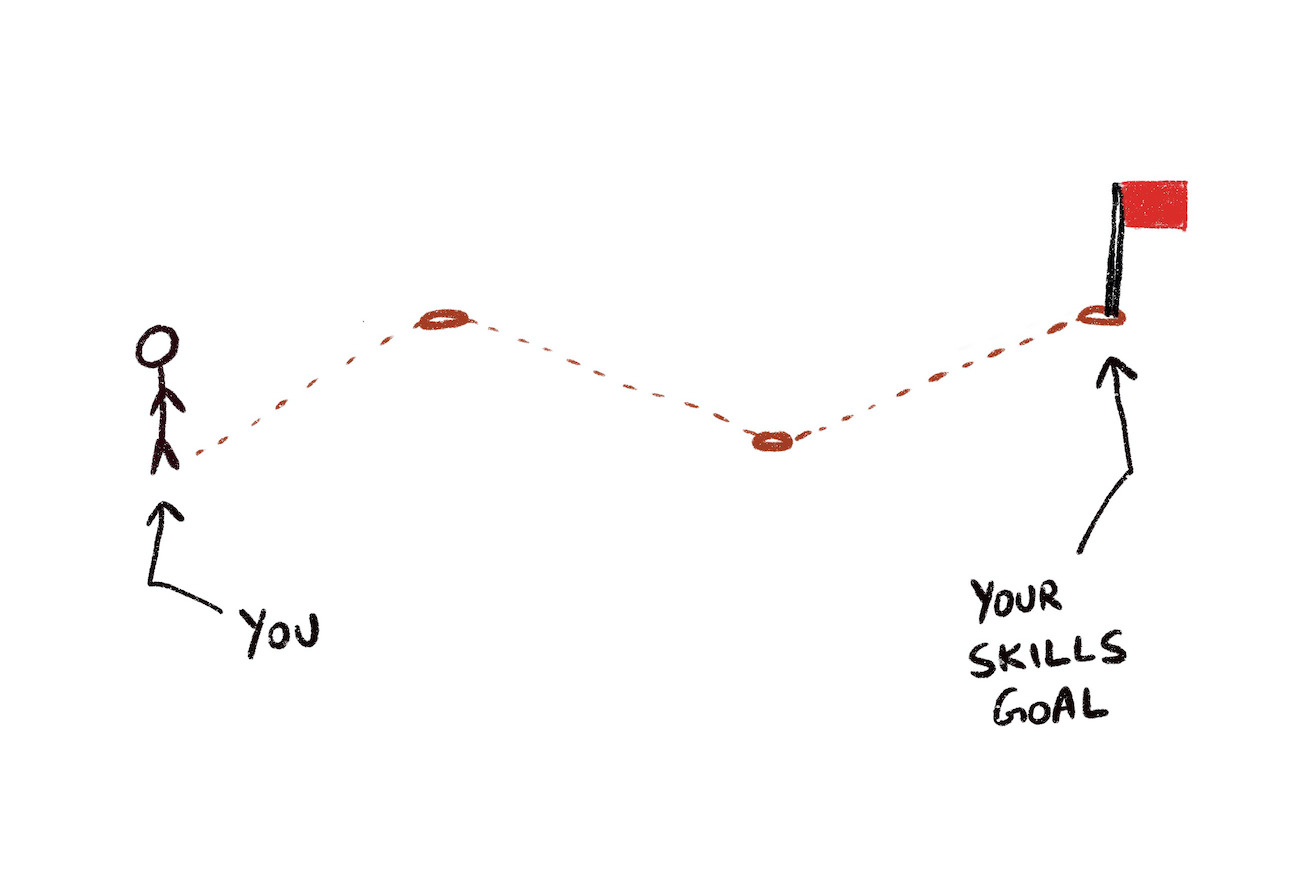 YOU
YOUR
SKILLS
GOAL